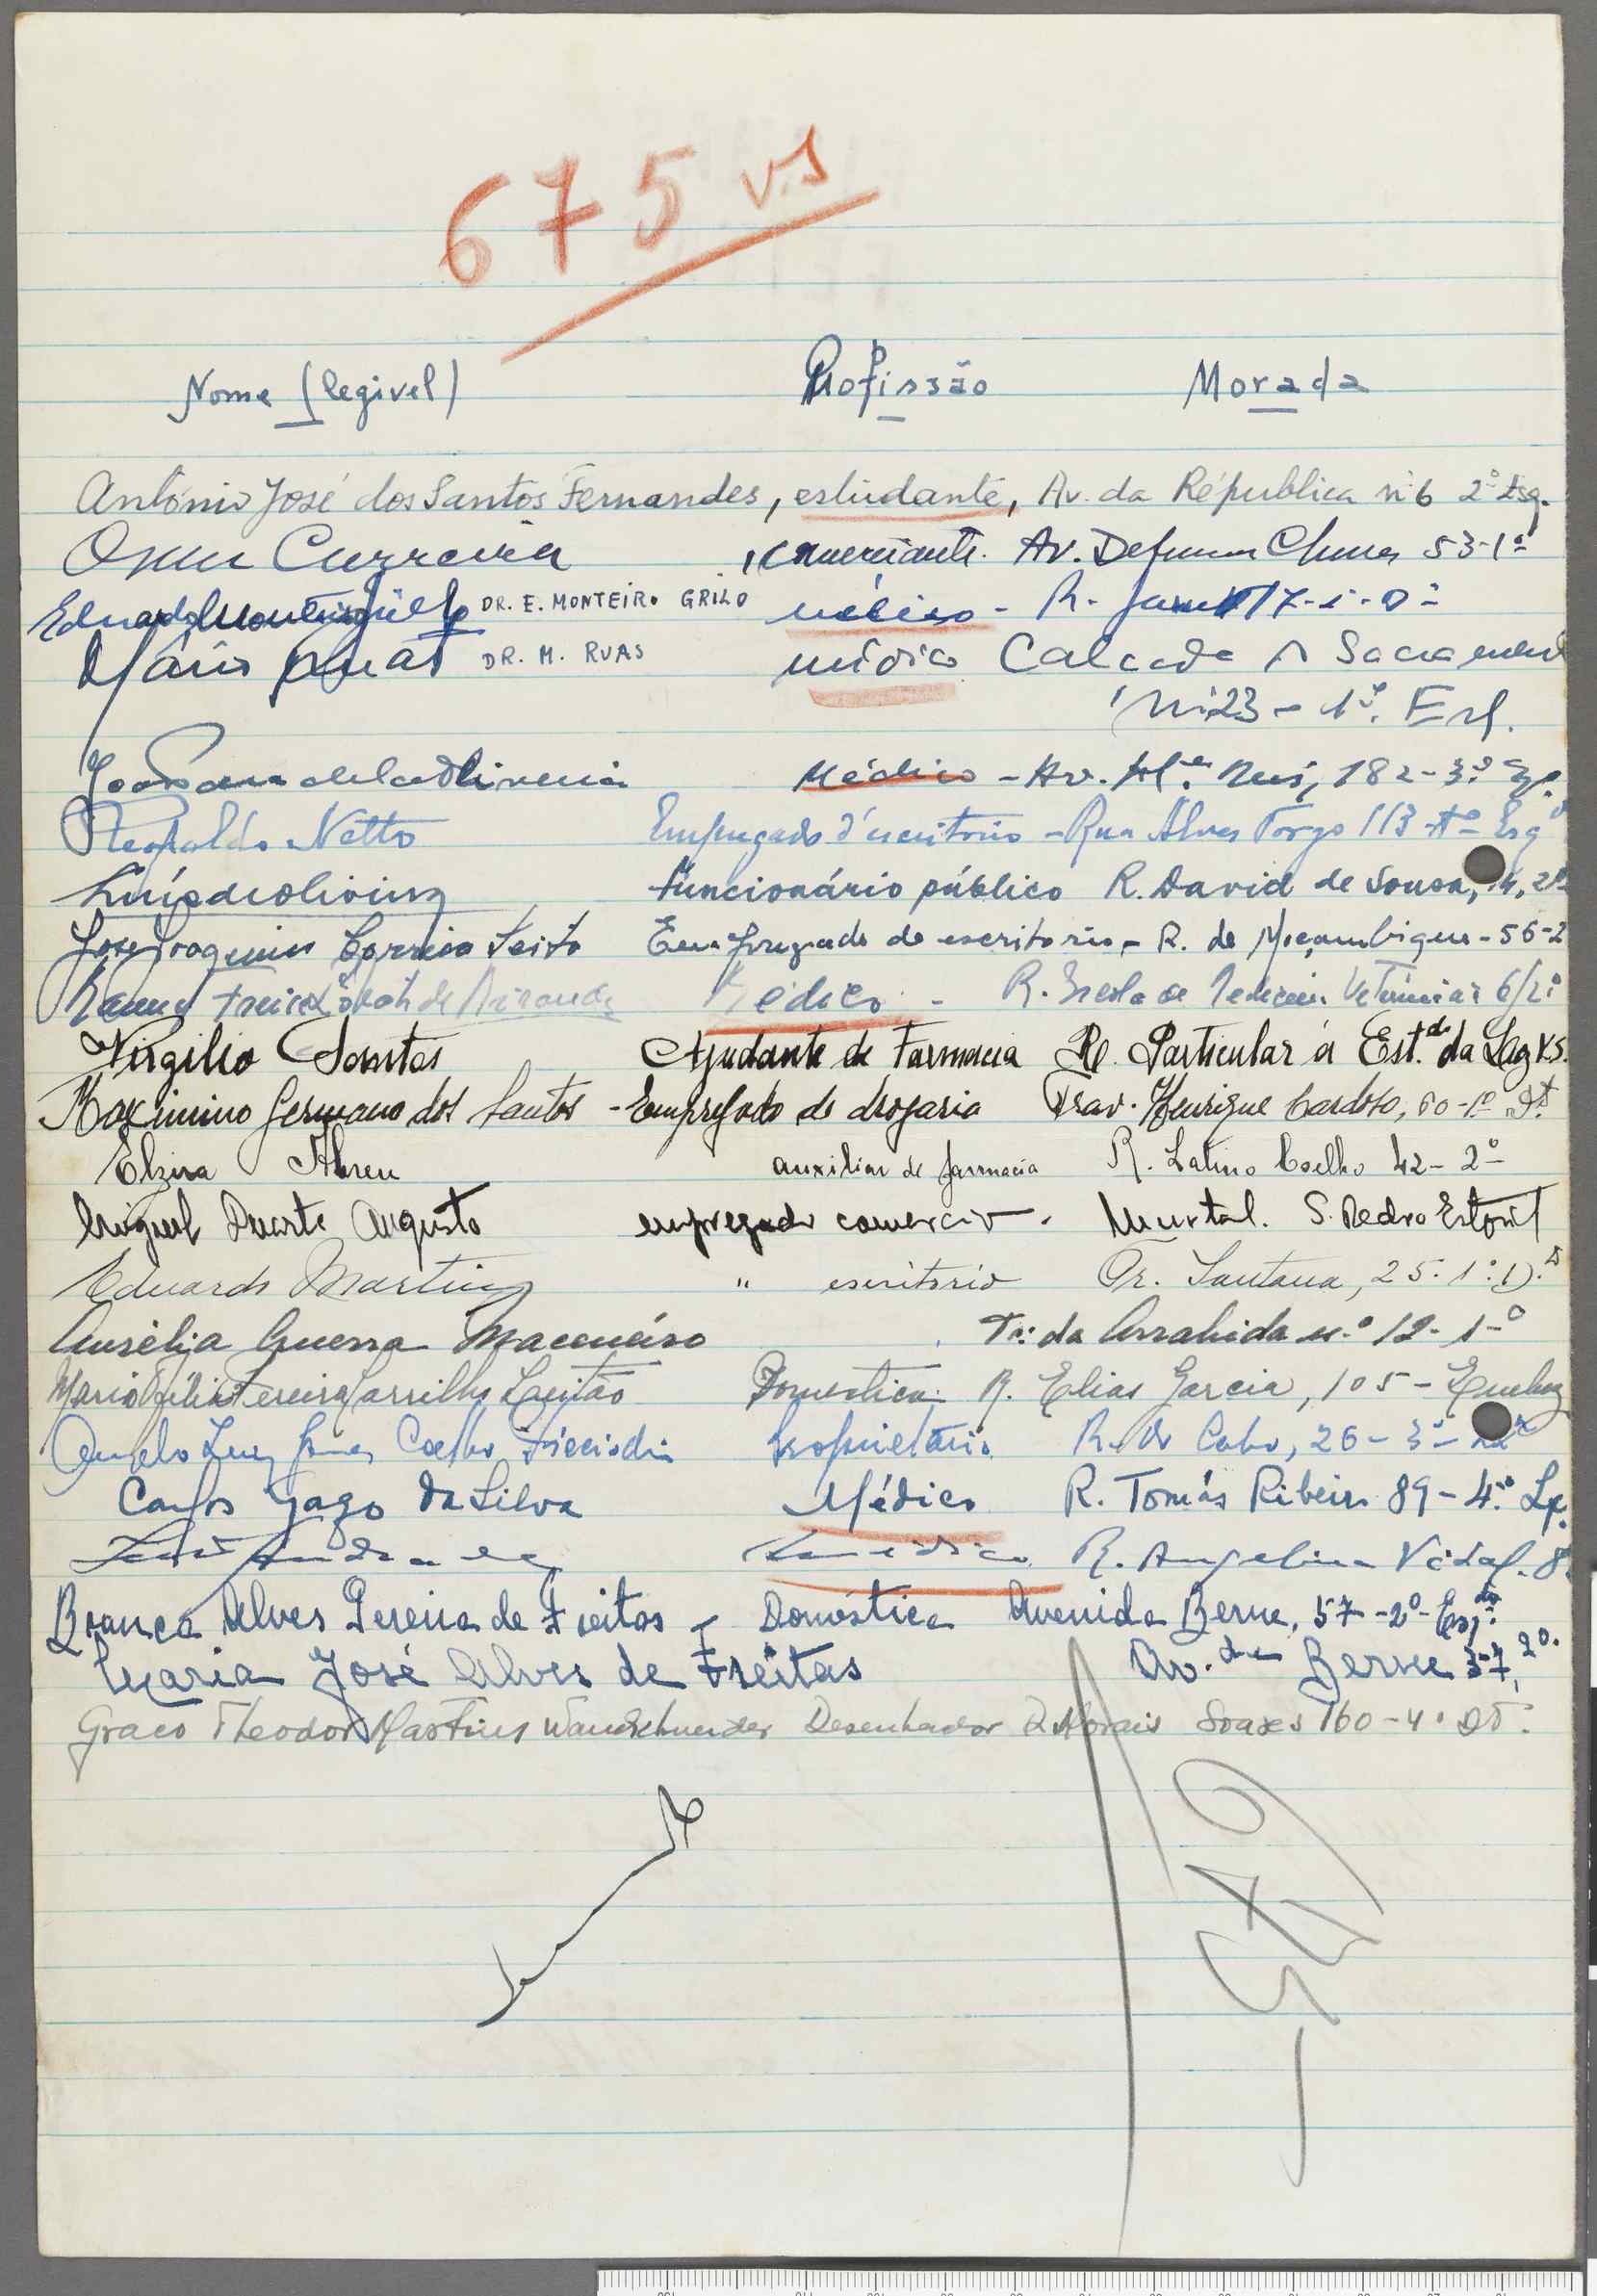 675 v.s
Nome (legivel) Profissão Morada
António José dos Santos Fernandes, estudante, Av. da Républica nº 6 2º Esq.
comerciante. Av. Defensores Chaves 53-1º
Eduardo Monteiro Grilo DR. E. MONTEIRO GRILO médico - R. 17-1-Dº
Mário Ruas DR. M. RUAS médico Calçada do Sacramento
nº 23 - 1º. Esq.
Médico - Av. Alm. Reis, 182-3º
Netto Empregado d'escritorio - Rua Alves Torgo 113 - Esqº
Luís de Oliveira funcionário público R. David de Sousa, 14, 2º
José Joaquim Correia Leite Empregado de escritorio - R. de Moçambique - 56-2
Médico - R. Escola de Medicina Veterinária 6/2º
Virgilio Santos Ajudante de Farmacia R. Particular á Est.da da Luz V.S.
Maximino Germano dos Santos - Empregado de drogaria Trav. Henrique Cardoso, 60-1º Dt.
Elzira Abreu auxiliar de farmacia R. Latino Coelho 42-2º
Miguel Duarte Augusto empregado comercio. Murtal. S. Pedro Estoril
Eduardo Martins " escritorio Tr. Santana, 25. 1º. D.to
Aurélia Guerra Tr. da Arrabida n.º 12-1º
Pereira Carrilho Leitão Domestica R. Elias Garcia, 105 - Queluz
Angelo Luiz Gomes Coelho Proprietário R. do Cabo, 26-3º
Carlos Gago da Silva Médico R. Tomás Ribeiro 89-4.º Lx.
médico R. Angelina Vidal. 8
Branca Alves Pereira de Freitas - Doméstica Avenida Berne, 57-2º-Esq.do
Maria José Alves de Freitas Av. de Berne 57, 2º.
Graco Theodor Martins Wanschneider Desenhador R Morais Soares 160-4º Dt.